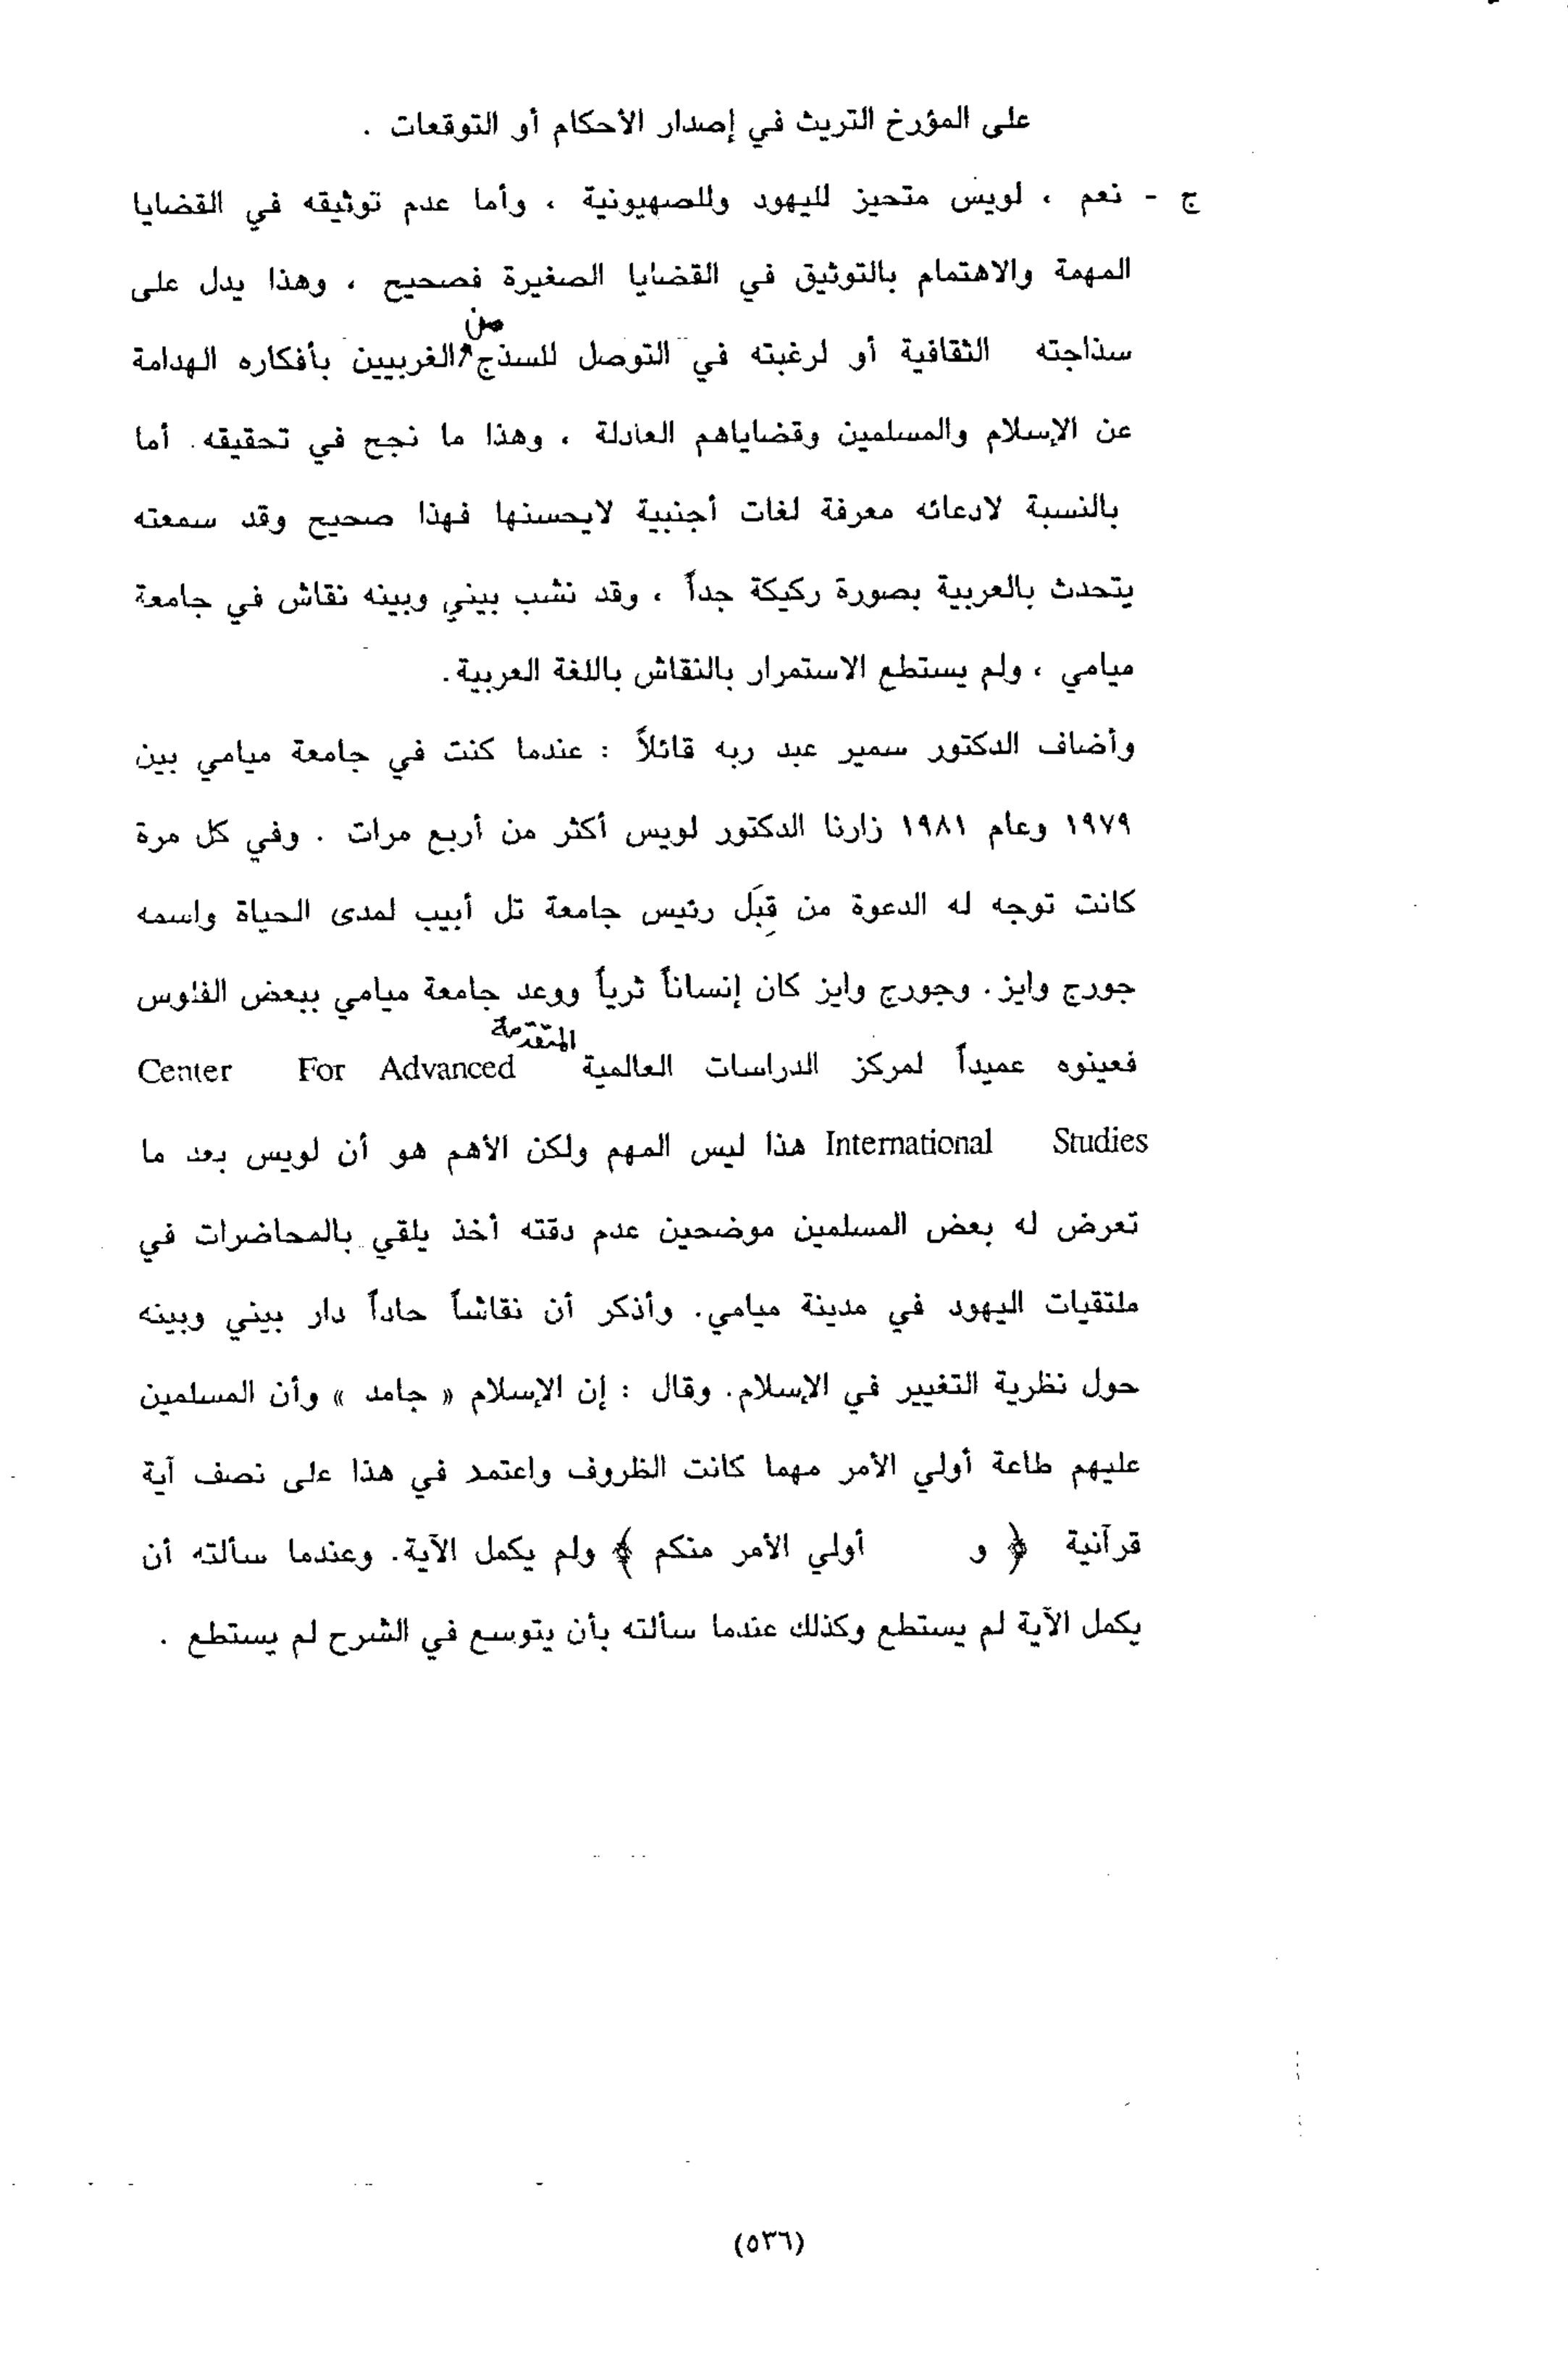 على المؤرخ التريث في إصدار الأحكام أو التوقعات .
ج - نعم ، لويس متحيز لليهود وللصهيونية ، وأما عدم توثيقه في القضايا
المهمة والاهتمام بالتوثيق في القضايا الصغيرة فصحيح ، وهذا يدل على
سذاجته الثقافية أو لرغبته في التوصل للسذج من الغربيين بأفكاره الهدامة
عن الإسلام والمسلمين وقضاياهم العادلة ، وهذا ما نجح في تحقيقه . أما
بالنسبة لادعائه معرفة لغات أجنبية لايحسنها فهذا صحيح وقد سمعته
يتحدث بالعربية بصورة ركيكة جداً ، وقد نشب بيني وبينه نقاش في جامعة
ميامي ، ولم يستطع الاستمرار بالنقاش باللغة العربية .
وأضاف الدكتور سمير عبد ربه قائلاً : عندما كنت في جامعة ميامي بين
١٩٧٩ وعام ١٩٨١ زارنا الدكتور لويس أكثر من أربع مرات . وفي كل مرة
كانت توجه له الدعوة من قِبَل رئيس جامعة تل أبيب لمدى الحياة واسمه
جورج وايز . وجورج وايز كان إنساناً ثرياً ووعد جامعة ميامي ببعض الفلوس
فعينوه عميداً لمركز الدراسات العالمية المتقدمة Center For Advanced
International Studies هذا ليس المهم ولكن الأهم هو أن لويس بعد ما
تعرض له بعض المسلمين موضحين عدم دقته أخذ يلقي بالمحاضرات في
ملتقيات اليهود في مدينة ميامي . وأذكر أن نقاشاً حاداً دار بيني وبينه
حول نظرية التغيير في الإسلام . وقال : إن الإسلام « جامد » وأن المسلمين
عليهم طاعة أولي الأمر مهما كانت الظروف واعتمد في هذا على نصف آية
قرآنية ﴿ و أولي الأمر منكم ﴾ ولم يكمل الآية . وعندما سألته أن
يكمل الآية لم يستطع وكذلك عندما سألته بأن يتوسع في الشرح لم يستطع .
(٥٣٦)